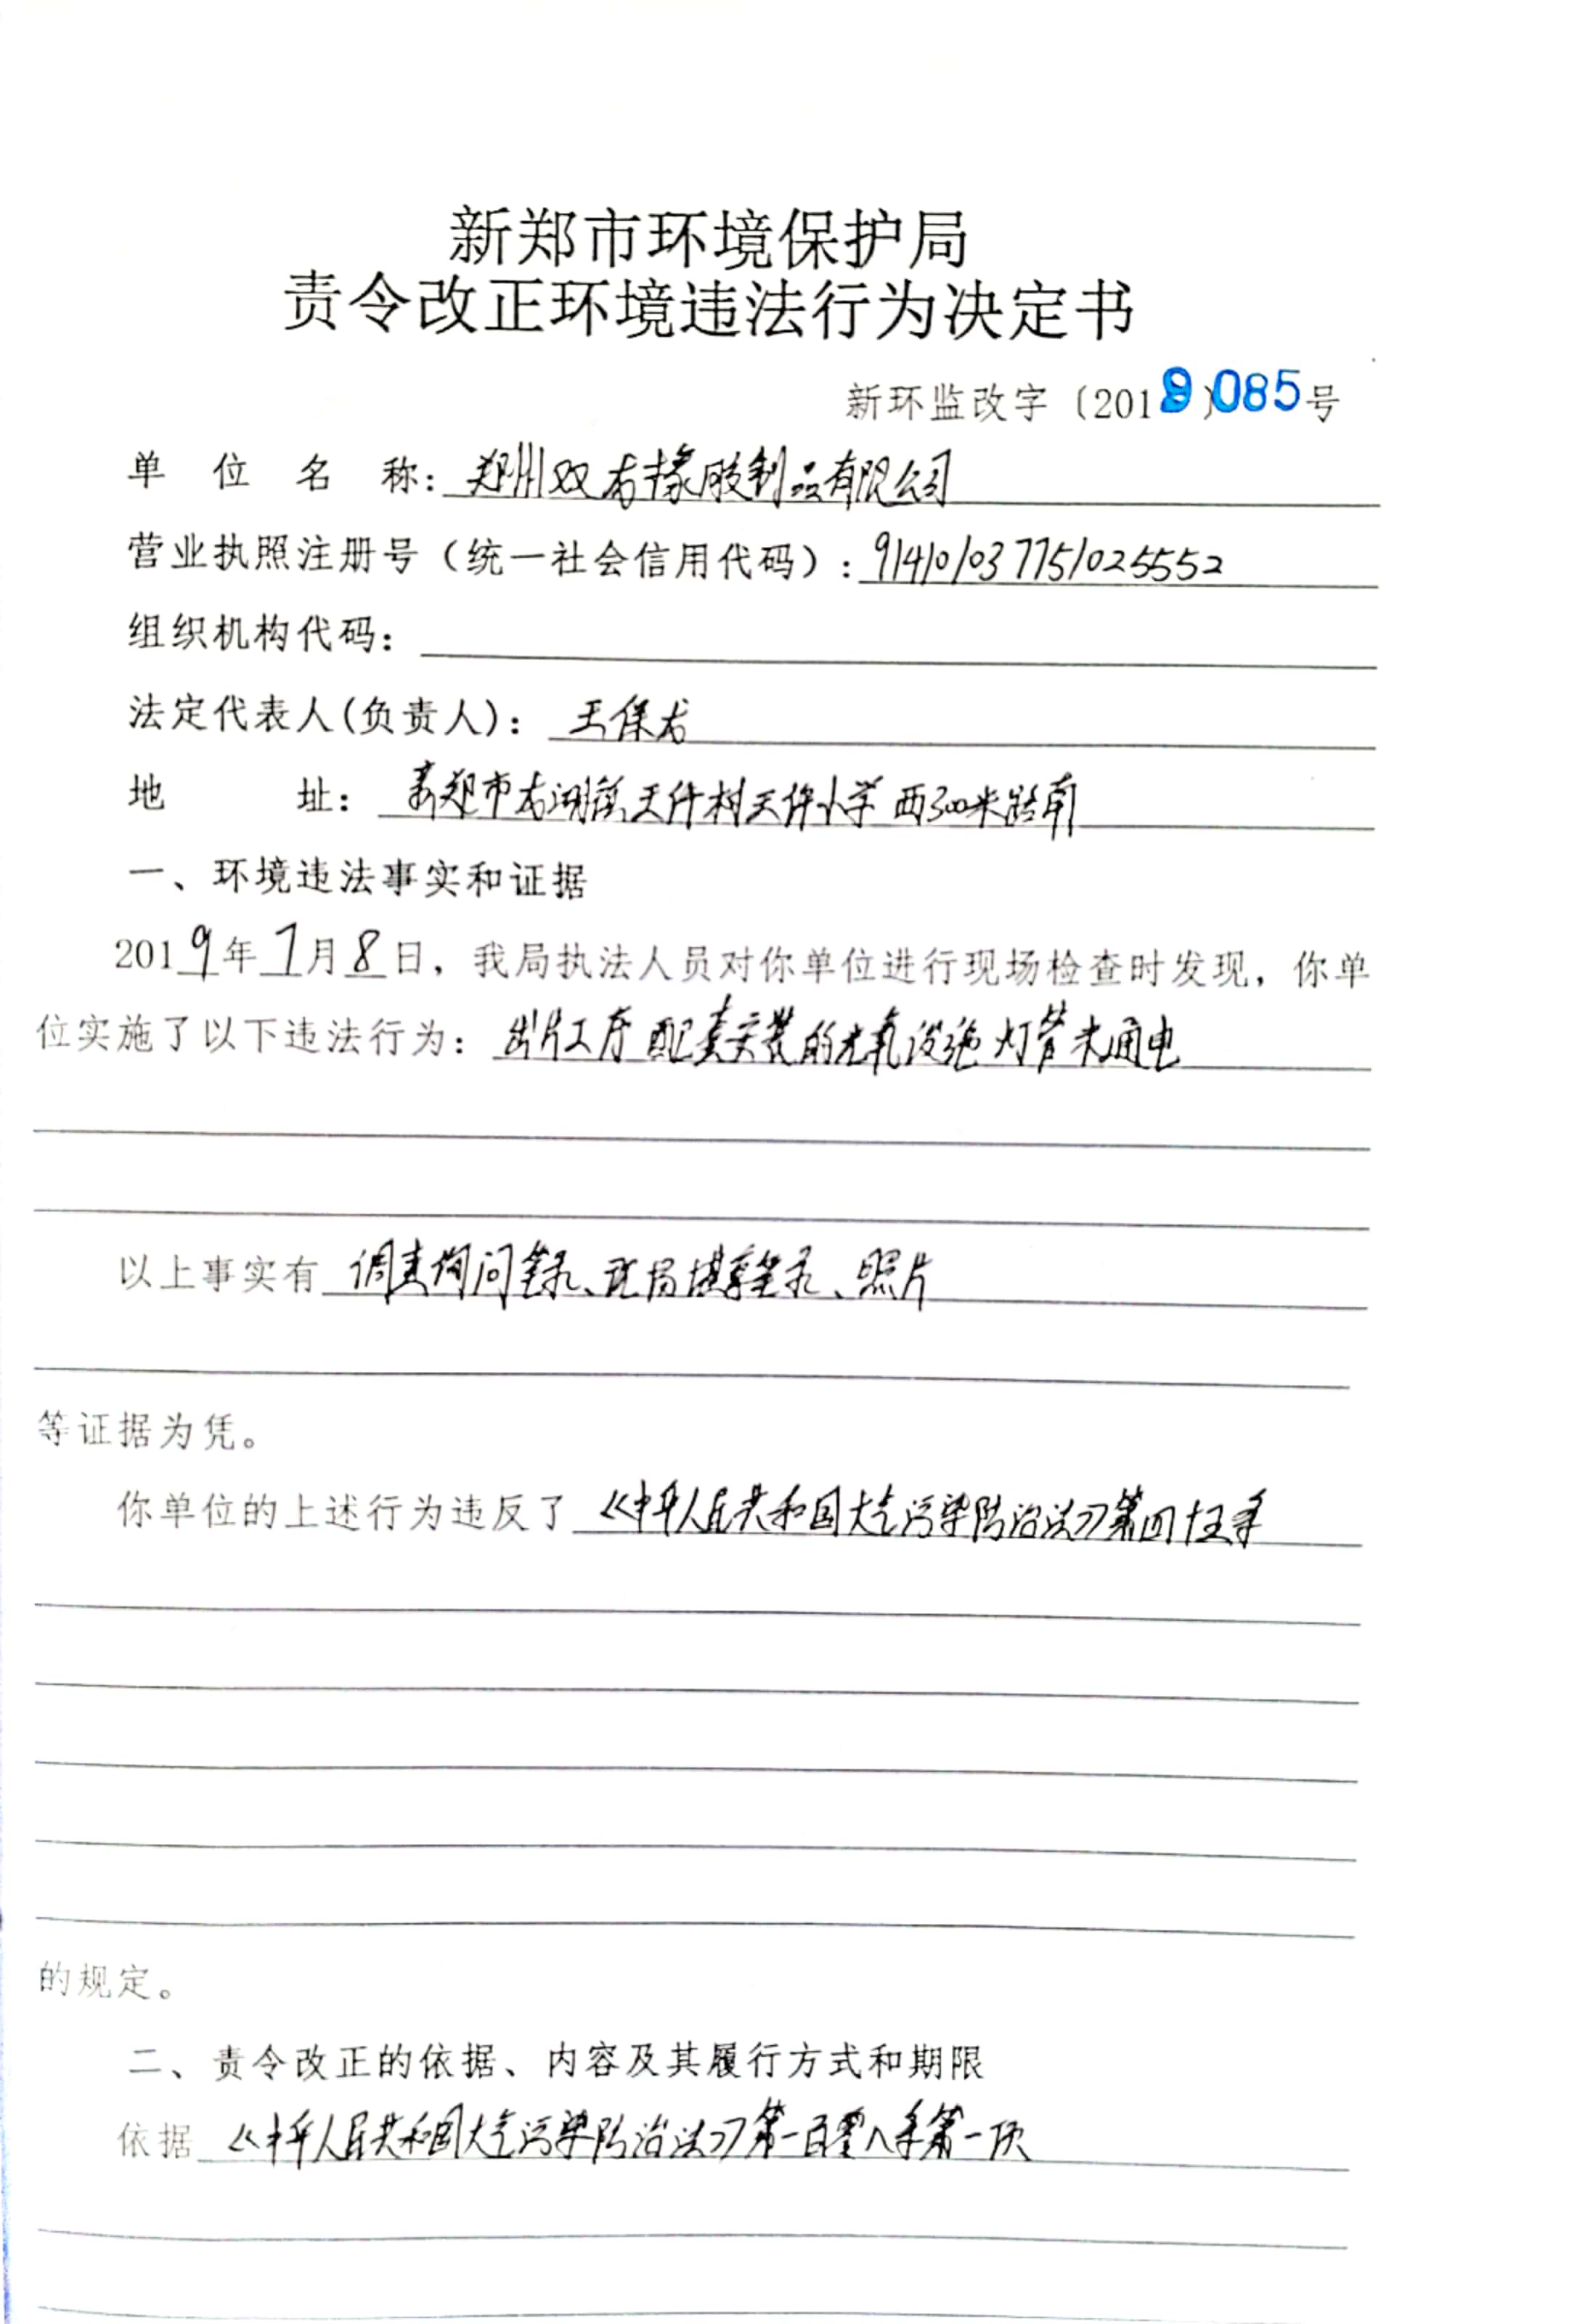 新郑市环境保护局
责令改正环境违法行为决定书
新环监改字〔2019〕085号
单位名称：郑州双龙橡胶制品有限公司
营业执照注册号（统一社会信用代码）：914101037751025552
组织机构代码：
法定代表人(负责人)：王保龙
地址：新郑市龙湖镇王件村王件小学西300米路南
一、环境违法事实和证据
2019年7月8日，我局执法人员对你单位进行现场检查时发现，你单
位实施了以下违法行为：出片工序配套安装的光氧设施灯管未通电
以上事实有调查询问笔录、现场勘察笔录、照片
等证据为凭。
你单位的上述行为违反了《中华人民共和国大气污染防治法》第四十五条
的规定。
二、责令改正的依据、内容及其履行方式和期限
依据《中华人民共和国大气污染防治法》第一百零八条第一项